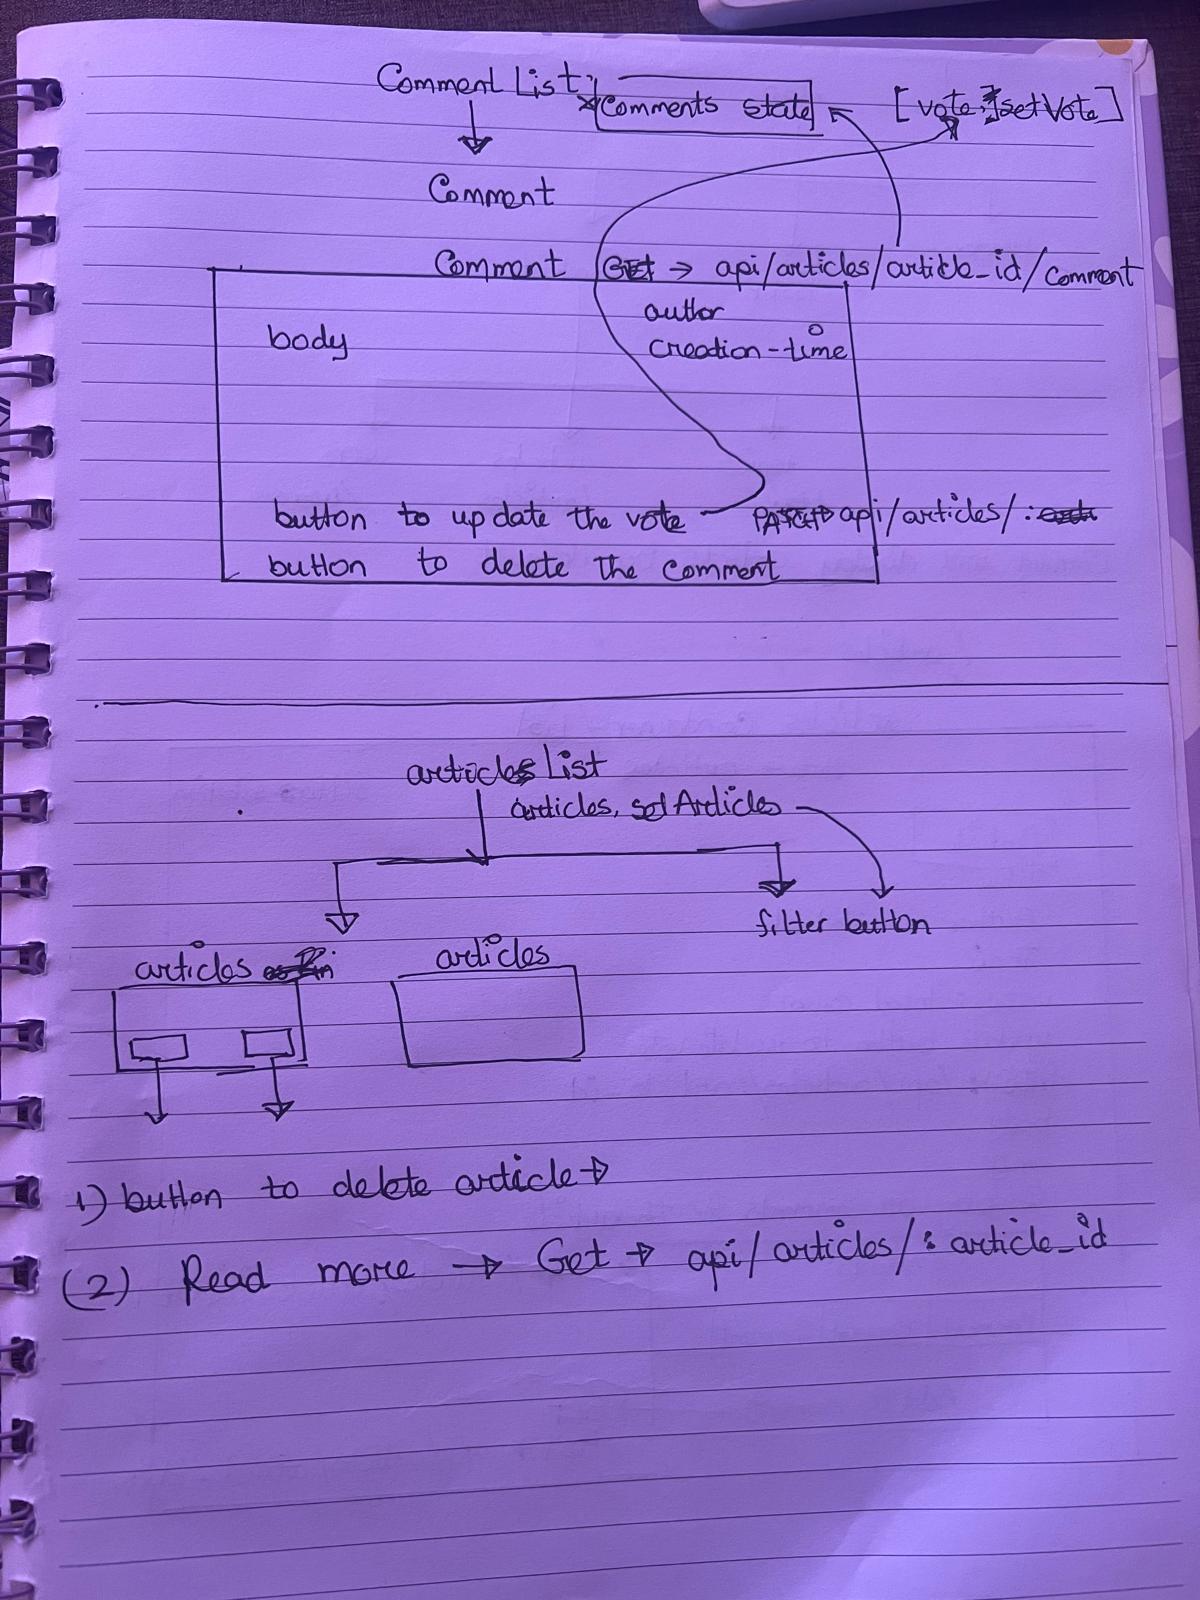 Comment List:
Comments state
[vote, setVote]
Comment
Comment GET → api/articles/article_id/comment
author
body
creation-time
button to update the vote PATCH → api/articles/:
button to delete the comment
articles List
articles, setArticles
filter button
articles
articles
1) button to delete article →
(2) Read more → Get → api/articles/: article_id